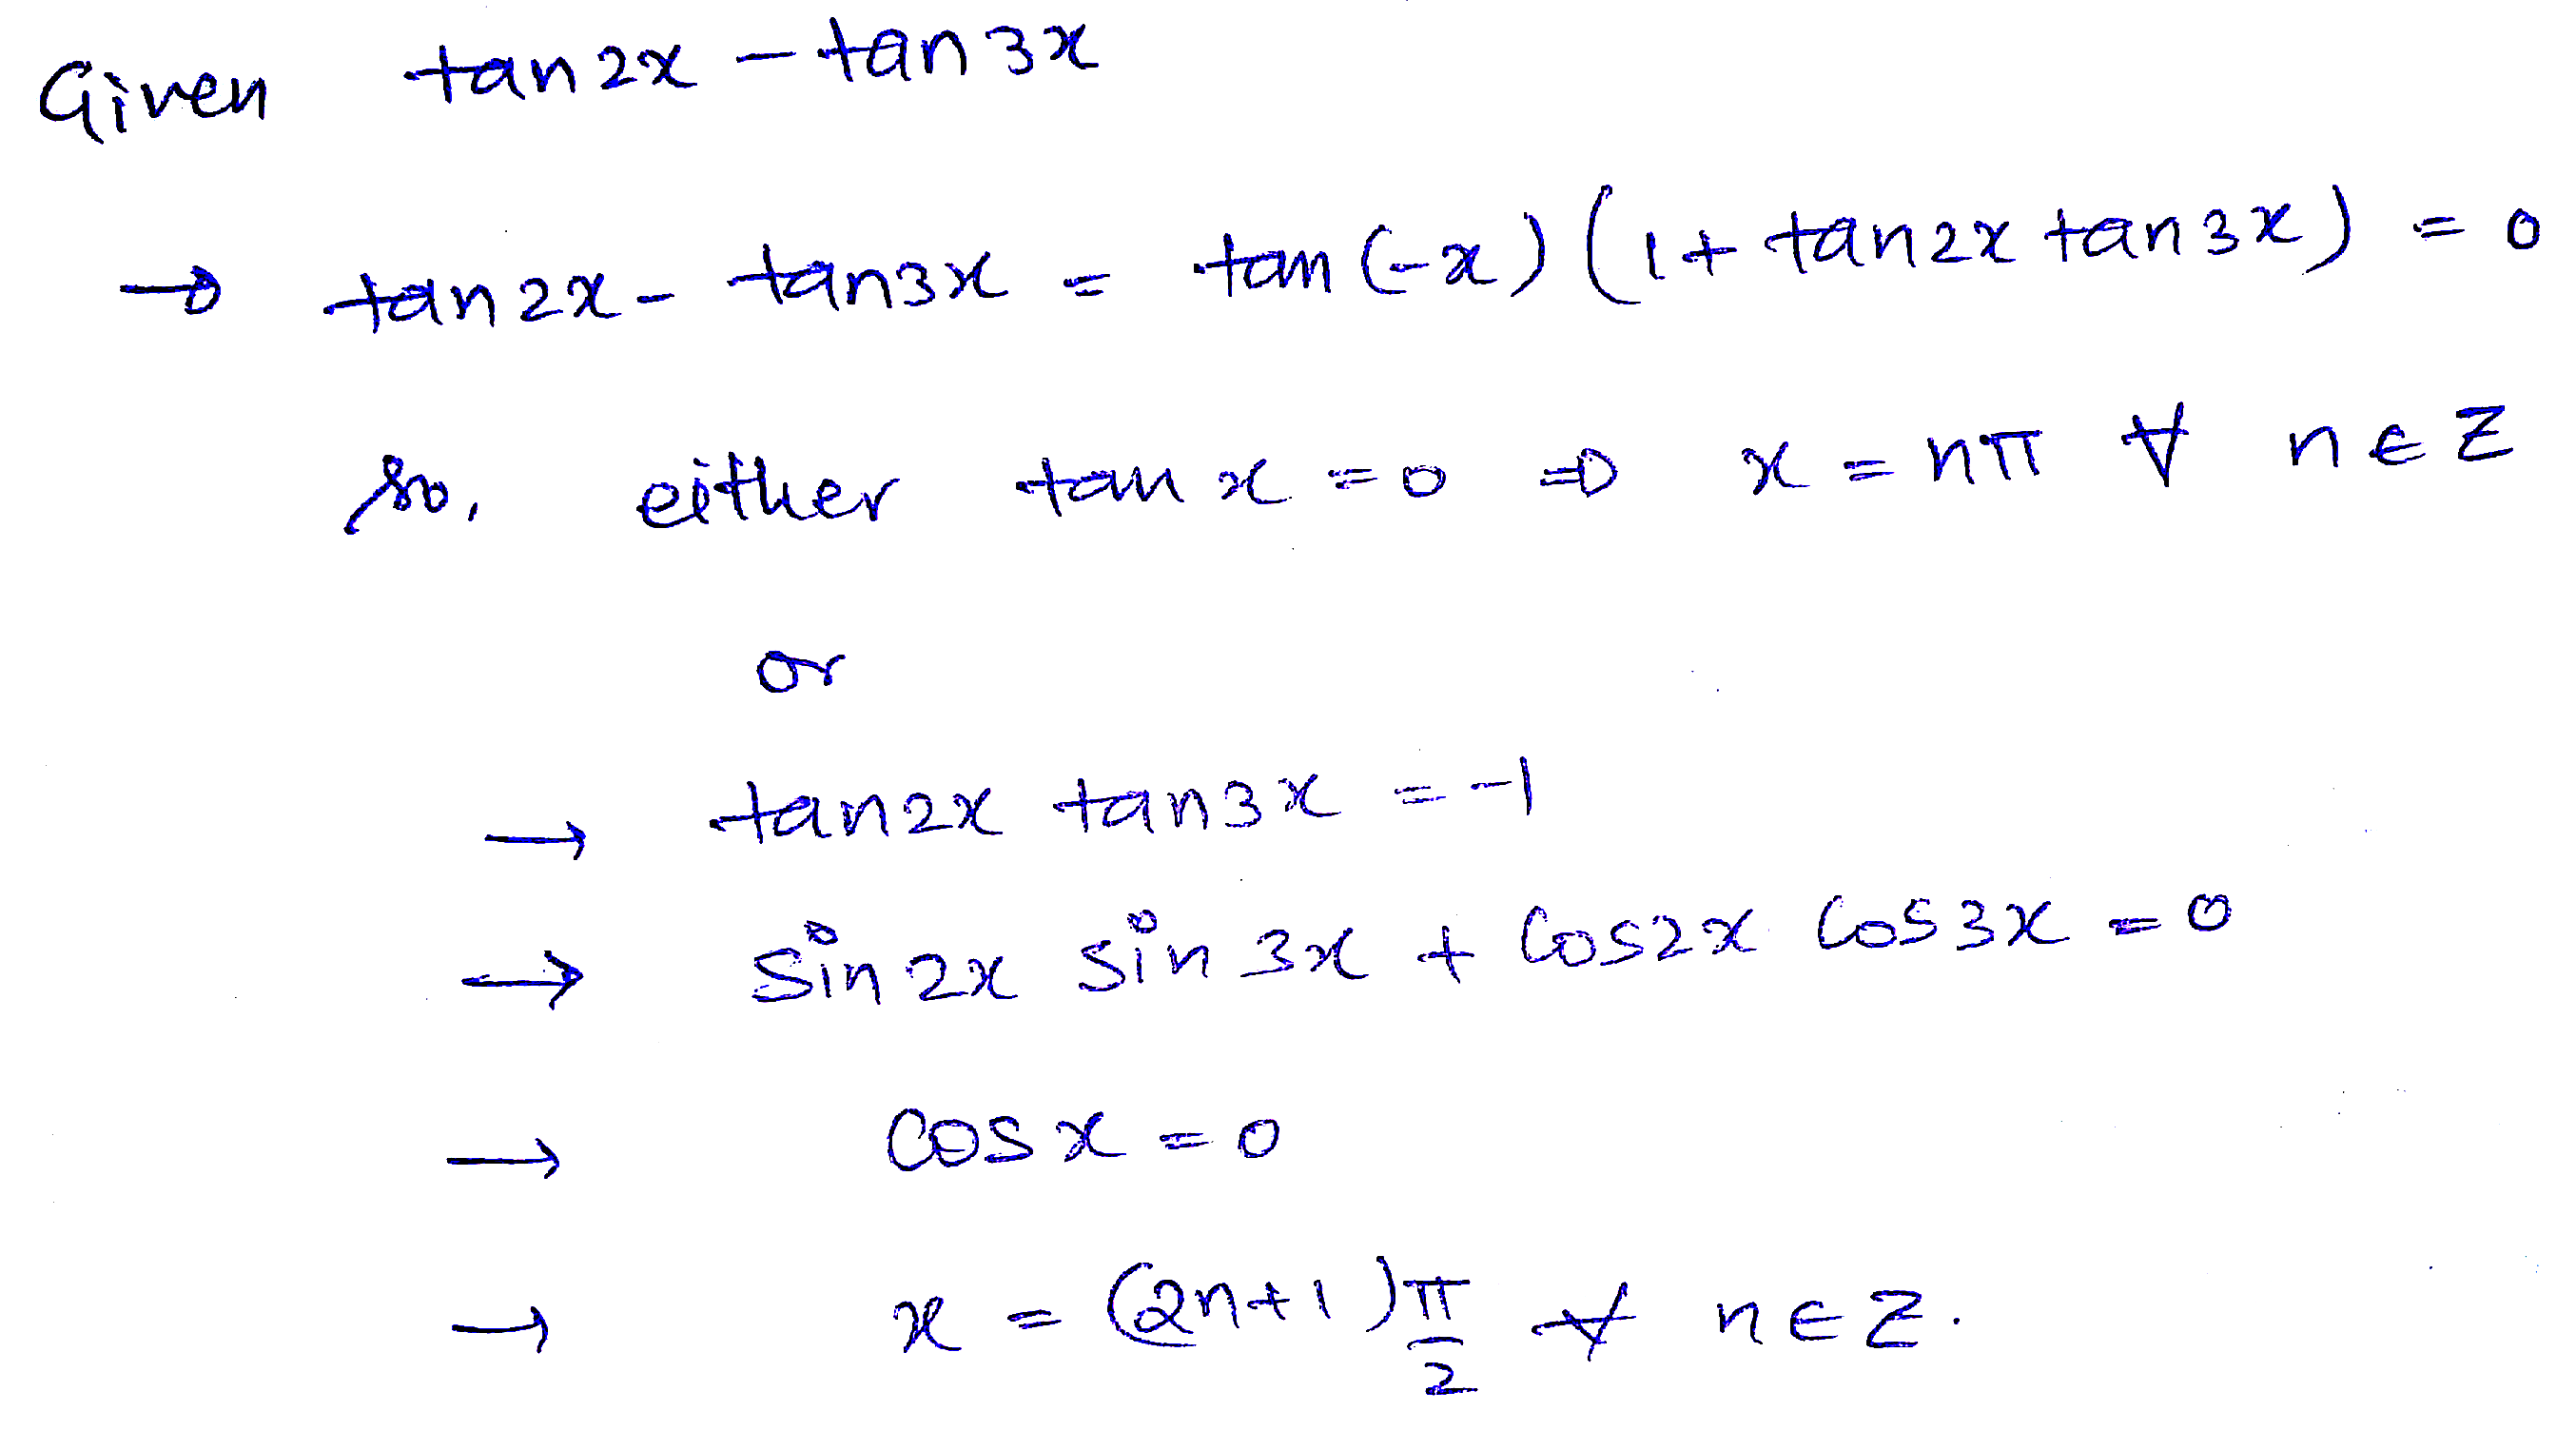 Given tan2x - tan3x
→ tan2x - tan3x = tan(-x) (1 + tan2x tan3x) = 0
so, either tan x = 0 ⇒ x = nπ ∀ n ∈ Z
or
→ tan2x tan3x = -1
→ sin2x sin3x + Cos2x Cos3x = 0
→ Cosx = 0
→ x = (2n+1)π/2 ∀ n ∈ Z.